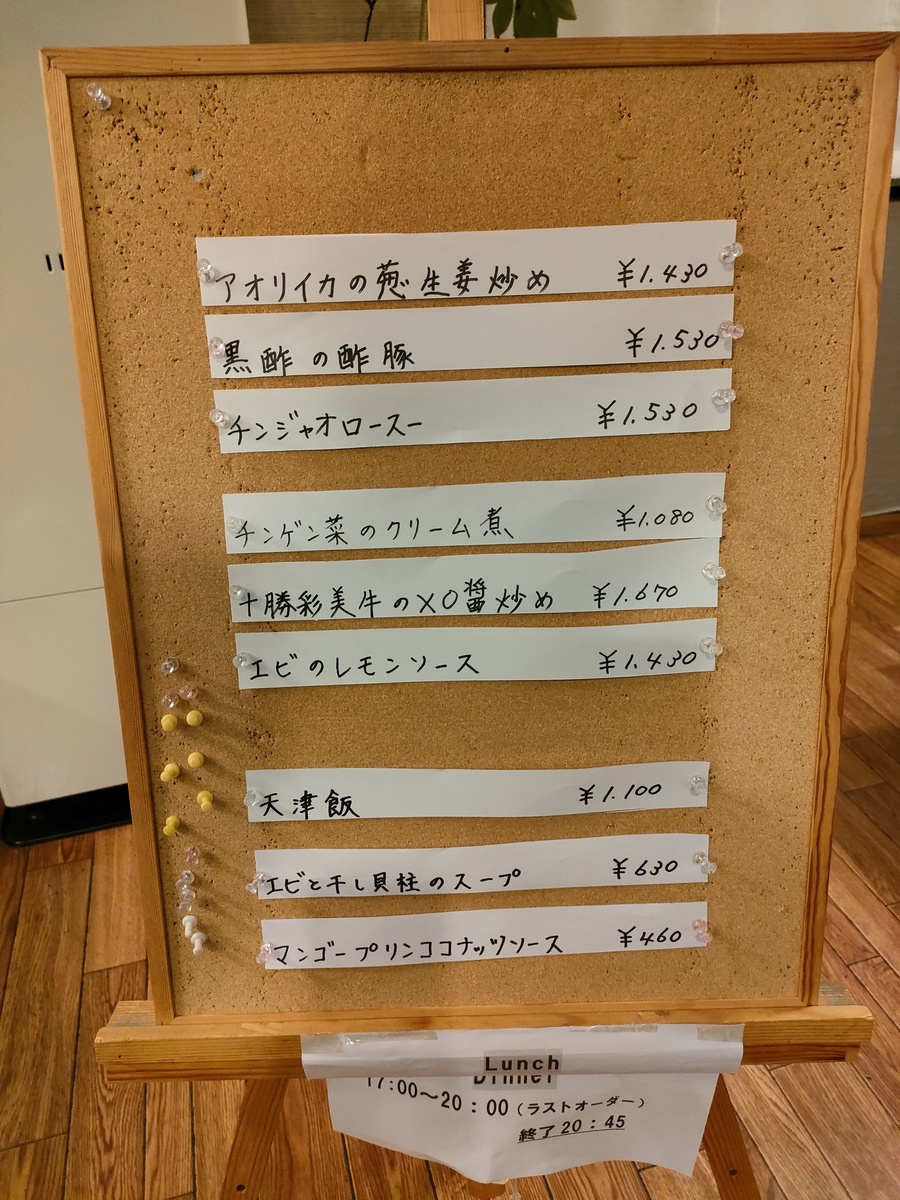 アオリイカの葱生姜炒め ¥1.430
黒酢の酢豚 ¥1.530
チンジャオロースー ¥1.530
チンゲン菜のクリーム煮 ¥1.080
十勝彩美牛のXO醤炒め ¥1.670
エビのレモンソース ¥1.430
天津飯 ¥1.100
エビと干し貝柱のスープ ¥630
マンゴープリンココナッツソース ¥460
Lunch
Dinner
17:00～20:00(ラストオーダー)
終了20:45